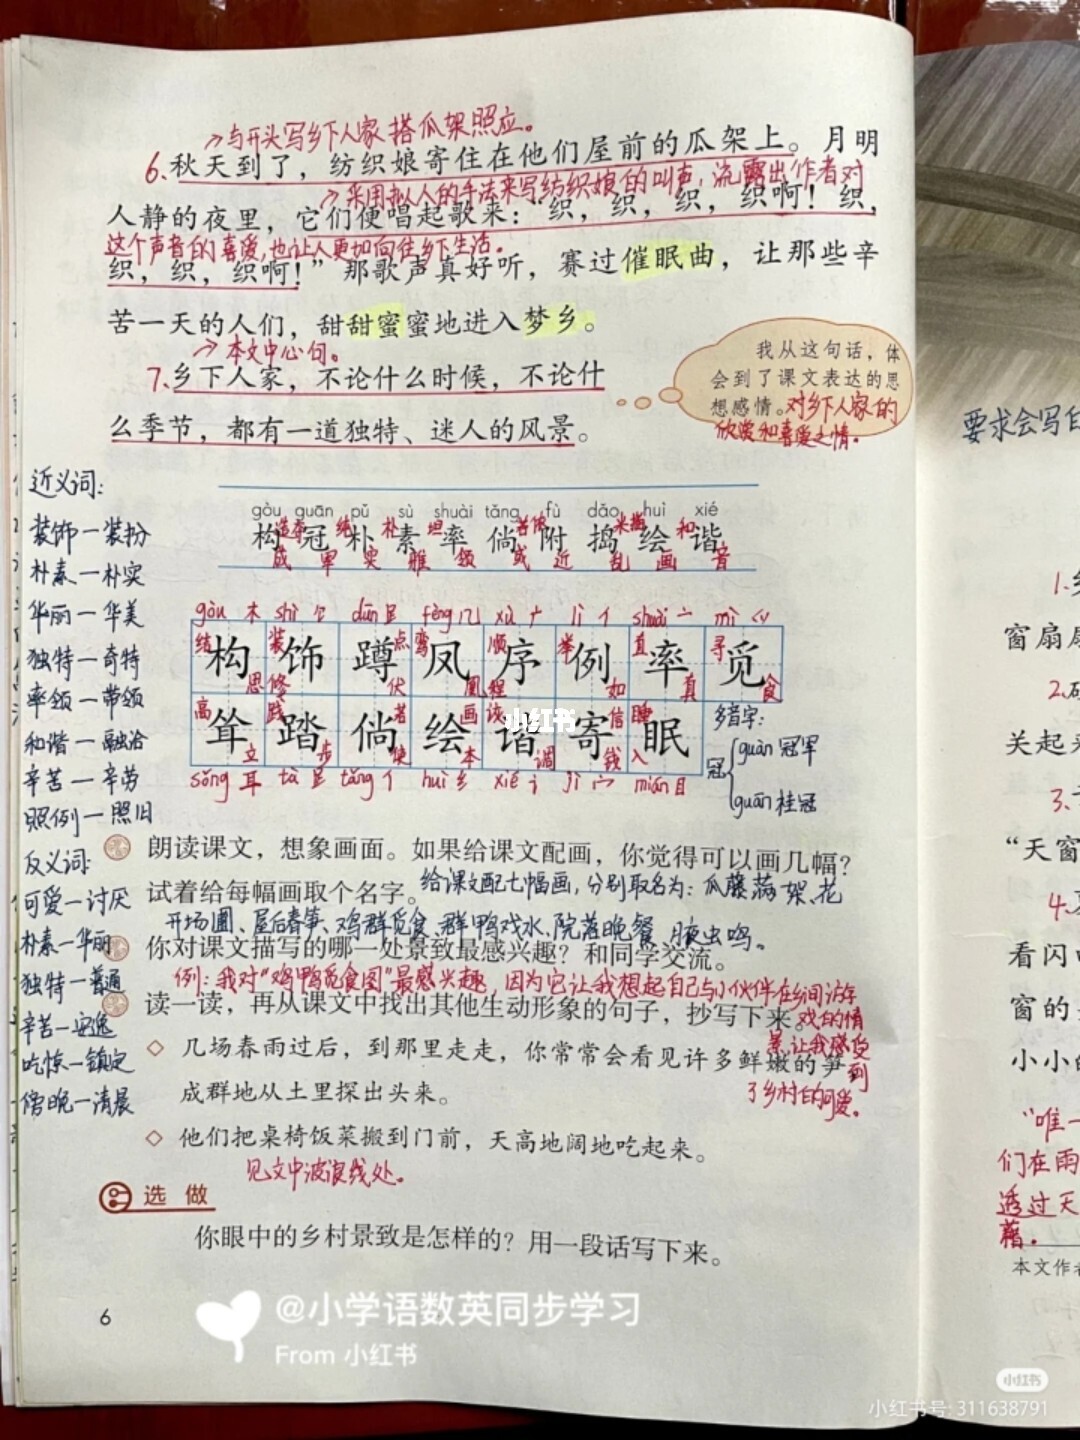 →与开头写乡下人家搭瓜架照应。
6.秋天到了，纺织娘寄住在他们屋前的瓜架上。月明
→采用拟人的手法来写纺织娘的叫声，流露出作者对
人静的夜里，它们便唱起歌来：“织，织，织，织啊！织，
这个声音的喜爱，也让人更加向往乡下生活。
织，织，织啊！”那歌声真好听，赛过催眠曲，让那些辛
苦一天的人们，甜甜蜜蜜地进入梦乡。
→本文中心句。
7.乡下人家，不论什么时候，不论什
么季节，都有一道独特、迷人的风景。
我从这句话，体
会到了课文表达的思
想感情。对乡下人家的
欣赏和喜爱之情。
近义词:
装饰—装扮
朴素—朴实
华丽—华美
独特—奇特
率领—带领
和谐—融洽
辛苦—辛劳
照例—照旧
反义词:
可爱—讨厌
朴素—华丽
独特—普通
辛苦—安逸
吃惊—镇定
傍晚—清晨
gòu guān pǔ sù shuài tǎng fù dǎo huì xié
构 冠 朴 素 率 倘 附 捣 绘 谐
成 军 实 雅 领 或 近 乱 画 音
gòu 木 shì 饣 dūn 足 fèng 几 xù 广 lì 亻 shuài 亠 mì 爫
构 饰 蹲 凤 序 例 率 觅
耸 踏 倘 绘 谐 寄 眠
sǒng 耳 tà 足 tǎng 亻 huì 纟 xié 讠 jì 宀 mián 目
多音字:
冠
guàn 冠军
guān 桂冠
朗读课文，想象画面。如果给课文配画，你觉得可以画几幅？
试着给每幅画取个名字。给课文配七幅画，分别取名为：瓜藤满架、花
开场圃、屋后春笋、鸡群觅食、群鸭戏水、院落晚餐、夜虫鸣。
你对课文描写的哪一处景致最感兴趣？和同学交流。
例：我对“鸡鸭觅食图”最感兴趣，因为它让我想起自己与小伙伴在乡间
读一读，再从课文中找出其他生动形象的句子，抄写下来。戏的情
景，让我感受到
了乡村的可爱。
◇ 几场春雨过后，到那里走走，你常常会看见许多鲜嫩的笋，
成群地从土里探出头来。
◇ 他们把桌椅饭菜搬到门前，天高地阔地吃起来。
见文中波浪线处。
选做
你眼中的乡村景致是怎样的？用一段话写下来。
6
@小学语数英同步学习
From 小红书
小红书
要求会写自
1.
窗扇
2.
关起
3.
“天窗
4.
看闪
窗的
小小的
“唯一
们在雨
透过天
藉。
本文作者
小红书
小红书号: 311638791